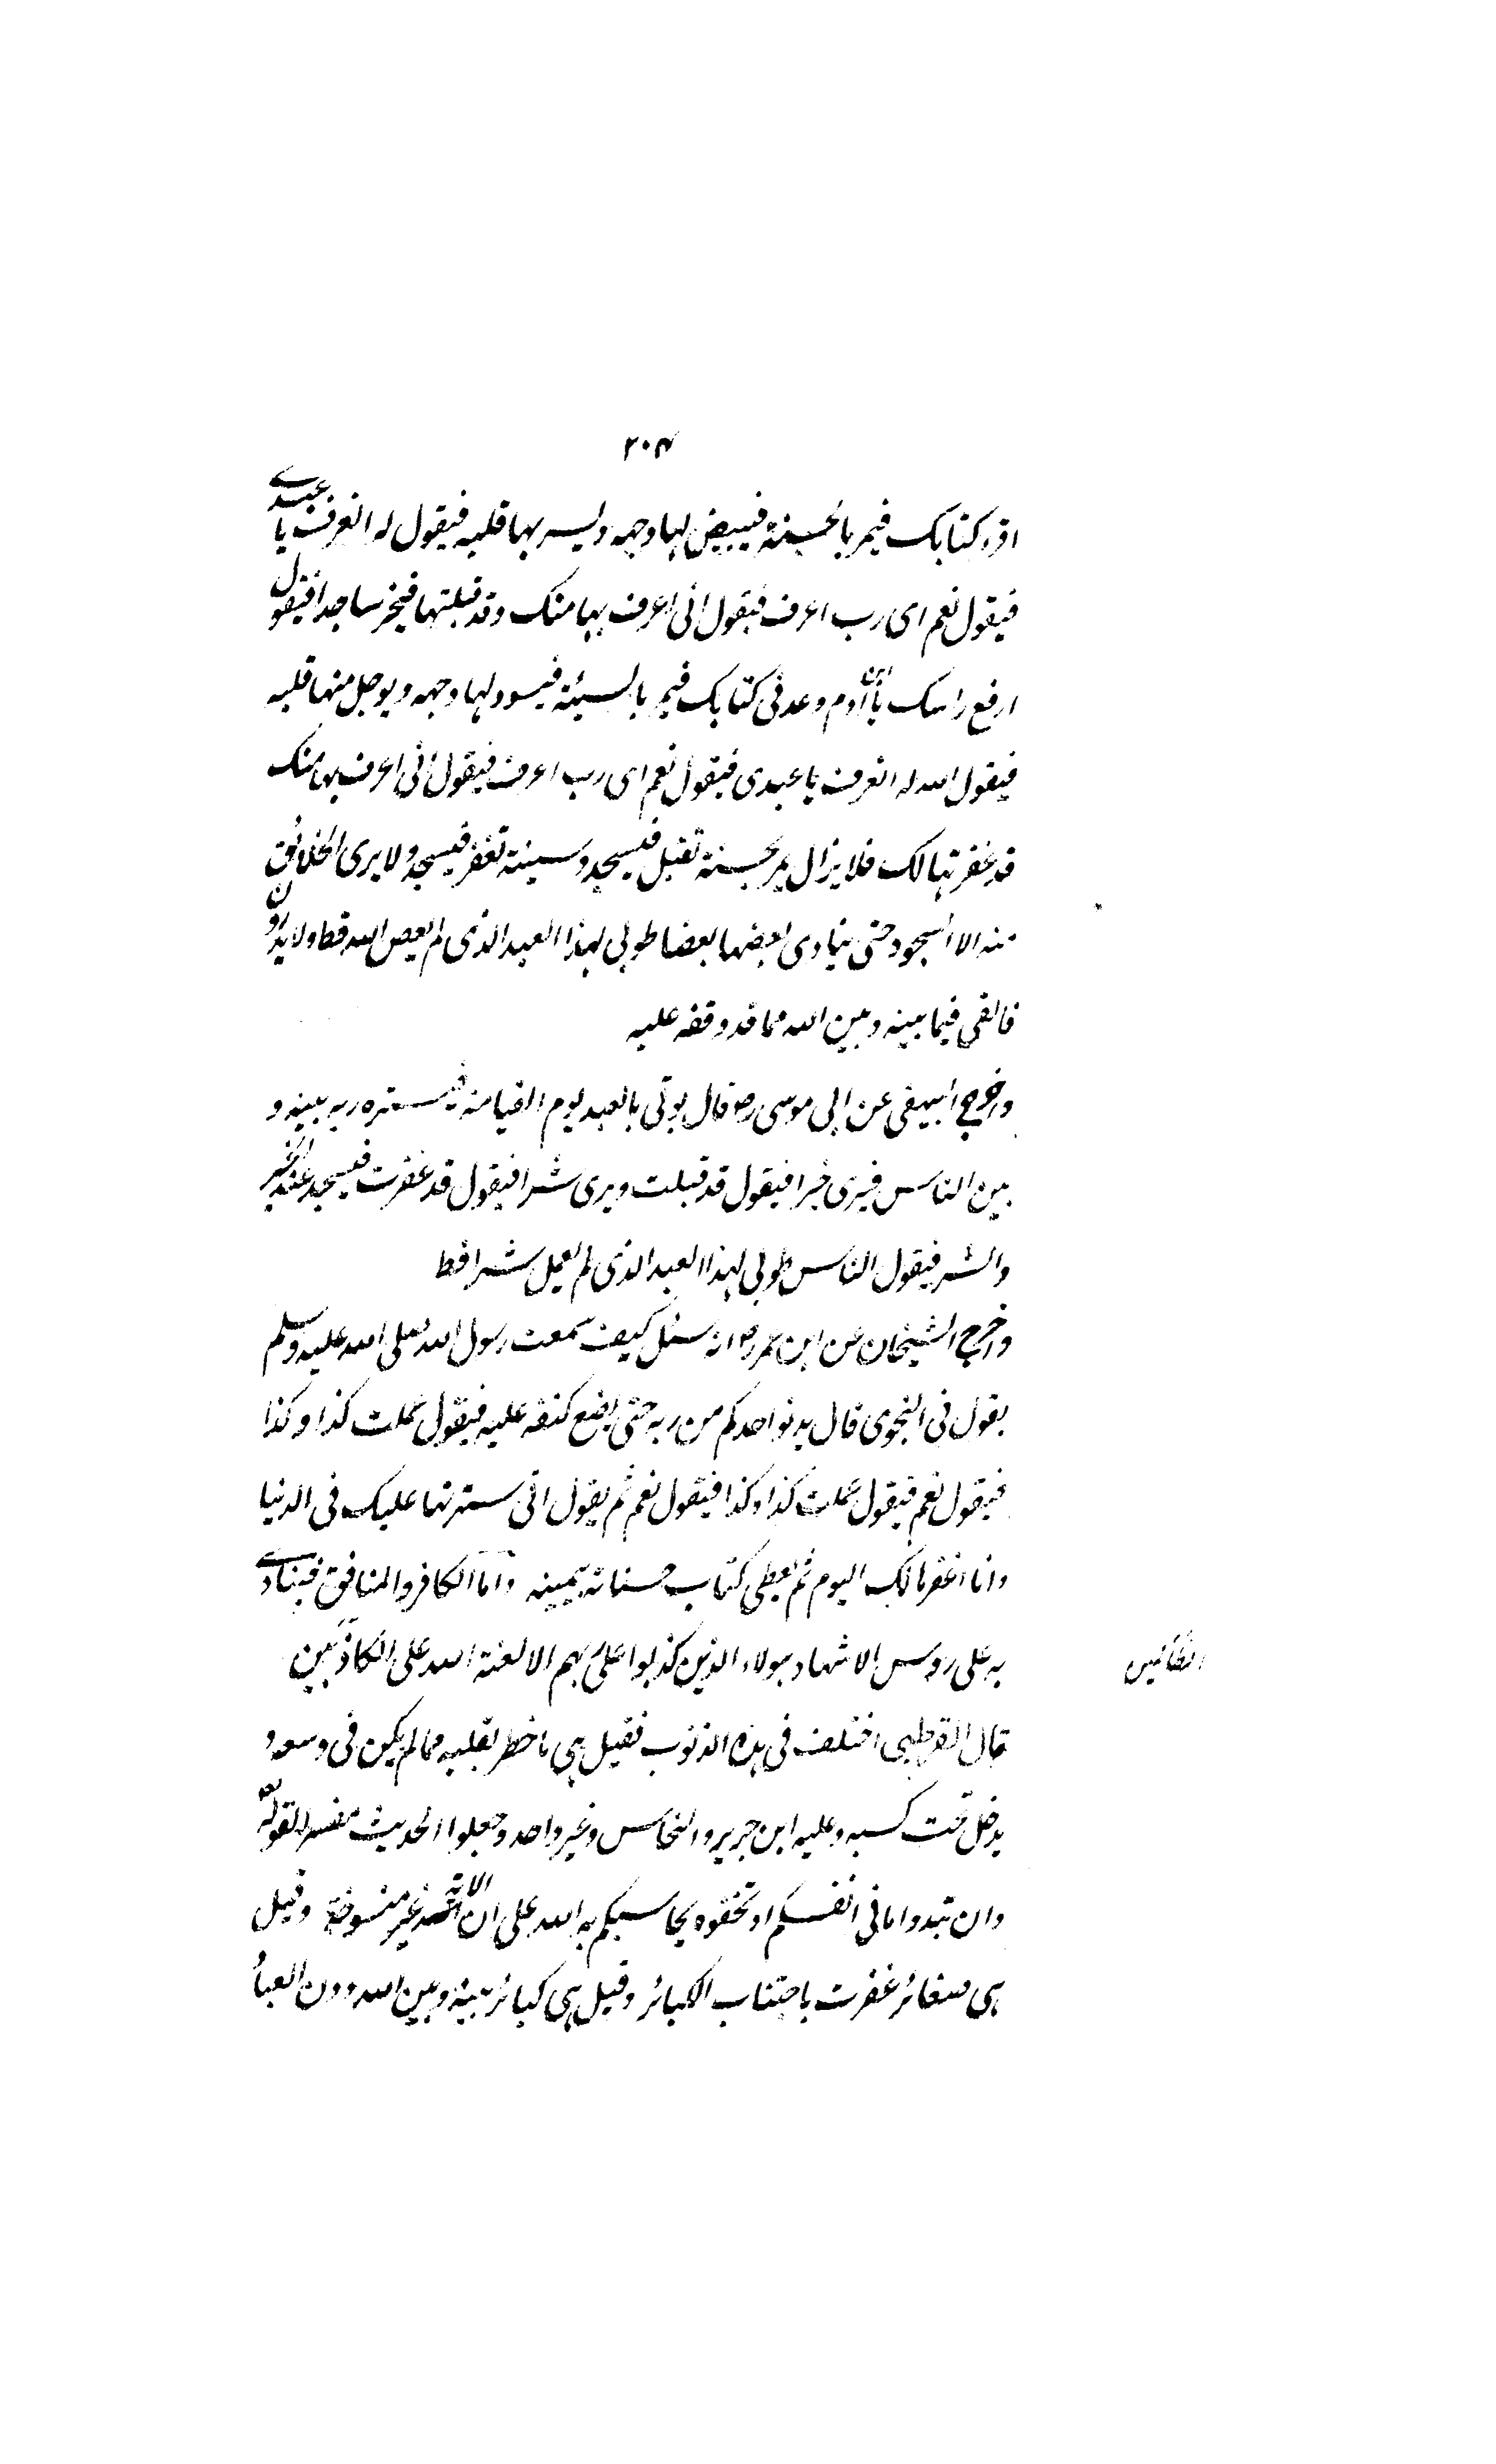 ۲۰۴
اقرء كتابك فيمر بالحسنة فيبيض لها وجهه ويسر بها قلبه فيقول له اتعرف يا عبدي
فيقول نعم اى رب اعرف فيقول انى اعرف بها منك وقد قبلتها فيخر ساجدا فيقول
ارفع راسك يا ابن آدم وعد فى كتابك فيمر بالسيئة فيسود لها وجهه ويوجل منها قلبه
فيقول الله له اتعرف يا عبدى فيقول نعم اى رب اعرف فيقول انى اعرف بها منك
قد غفرتها لك فلا يزال يمر بحسنة تقبل فيسجد وسيئة تغفر فيسجد ولا يرى الخلائق
منه الا السجود حتى ينادى بعضها بعضا طوبى لهذا العبد الذى لم يعص الله قط ولا يدرون
مالقى فيما بينه وبين الله مما قد وقفه عليه
واخرج البيهقى عن ابى موسى رض قال يوتى بالعبد يوم القيامة فيستره ربه بينه و
بين الناس فيرى خيرا فيقول قد قبلت ويرى شرا فيقول قد غفرت فيسجد عند الخير
والشر فيقول الناس طوبى لهذا العبد الذى لم يعمل شرا قط
واخرج الشيخان عن ابن عمر رض انه سئل كيف سمعت رسول الله صلى الله عليه وسلم
يقول فى النجوى قال يدنو احدكم من ربه حتى يضع كنفه عليه فيقول عملت كذا وكذا
فيقول نعم فيقول عملت كذا وكذا فيقول نعم ثم يقول انى سترتها عليك فى الدنيا
وانا اغفرها لك اليوم ثم يعطى كتاب حسناته بيمينه واما الكافر والمنافق فينادے
به على رؤس الاشهاد هولاء الذين كذبوا على ربهم الا لعنة الله على الكاذبين
الظالمين
قال القرطبى اختلف فى هذه الذنوب فقيل هى ما خطر بقلبه مما لم يكن فى وسعه و
يدخل تحت كسبه وعليه ابن جرير والنحاس وغير واحد وجعلوا الحديث مفسرا لقوله تع
وان تبدوا ما فى انفسكم او تخفوه يحاسبكم به الله على ان الآية غير منسوخة وقيل
هى صغائر غفرت باجتناب الكبائر وقيل هى كبائر بينه وبين الله دون العباد